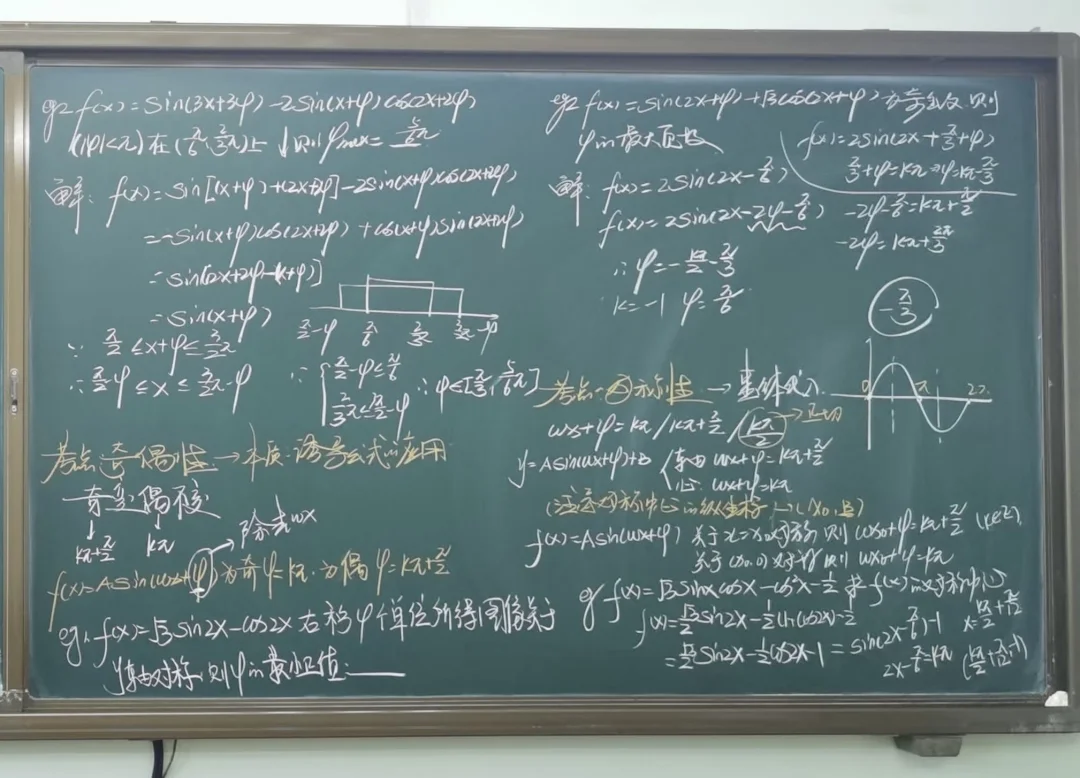 eg2 f(x)=sin(3x+3φ)-2sin(x+φ)cos(2x+2φ)
(|φ|<π)在(π/6, 2/3π)上↓则φmax=5/6π
解: f(x)=sin[(x+φ)+(2x+2φ)]-2sin(x+φ)cos(2x+2φ)
=-sin(x+φ)cos(2x+2φ)+cos(x+φ)sin(2x+2φ)
=sin[2x+2φ-(x+φ)]
=sin(x+φ)
π/2-φ π/6 2/3π 3/2π-φ
∵ π/2≤x+φ≤3/2π
∴ π/2-φ≤x≤3/2π-φ
∵ { π/2-φ≤π/6
∴φ∈[π/3, 5/6π]
考点:奇偶性→本质:诱导公式的应用
奇变偶不变
kπ+π/2 kπ
除去ωx
f(x)=Asin(ωx+φ)为奇φ=kπ.为偶φ=kπ+π/2
eg1. f(x)=√3sin2x-cos2x右移φ个单位所得图像关于
y轴对称,则φ的最小正值:
eg2 f(x)=sin(2x+φ)+√3cos(2x+φ)为奇函数,则
φ的最大负数
f(x)=2sin(2x+π/3+φ)
π/3+φ=kπ φ=kπ-π/3
解: f(x)=2sin(2x-π/6)
f(x)=2sin(2x-2φ-π/6)
-2φ-π/6=kπ+π/2
-2φ=kπ+2π/3
∴φ=-kπ/2-π/3
k=-1 φ=π/6
-π/3
0 π 2π
考点:对称性→整体代入
ωx+φ=kπ/kπ+π/2/kπ/2→正切
y=Asin(ωx+φ)+B { 轴 ωx+φ=kπ+π/2
心: ωx+φ=kπ
(注意对称中心的纵坐标→(x0,B)
f(x)=Asin(ωx+φ) 关于x=x0对称则ωx0+φ=kπ+π/2 (k∈Z)
关于(x0,0)对称则ωx0+φ=kπ
eg f(x)=√3sinxcosx-cos²x-1/2求f(x)的对称中心
f(x)=√3/2sin2x-1/2(1+cos2x)-1/2
=√3/2sin2x-1/2cos2x-1=sin(2x-π/6)-1
2x-π/6=kπ
x=kπ/2+π/12
(kπ/2+π/12,-1)